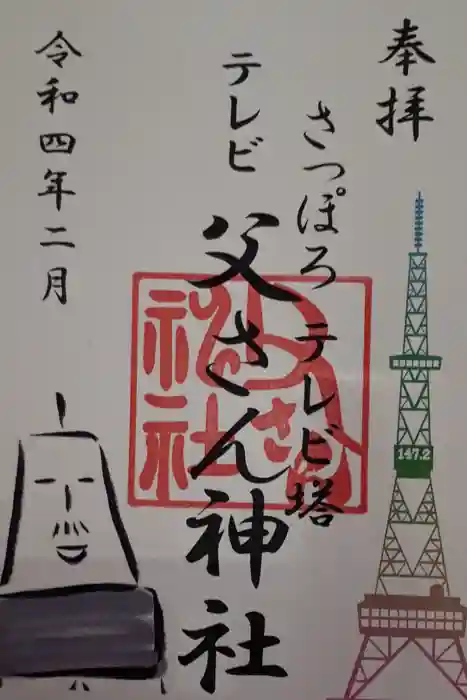 奉拝
さっぽろテレビ塔
テレビ
父さん神社
令和四年二月
147.2